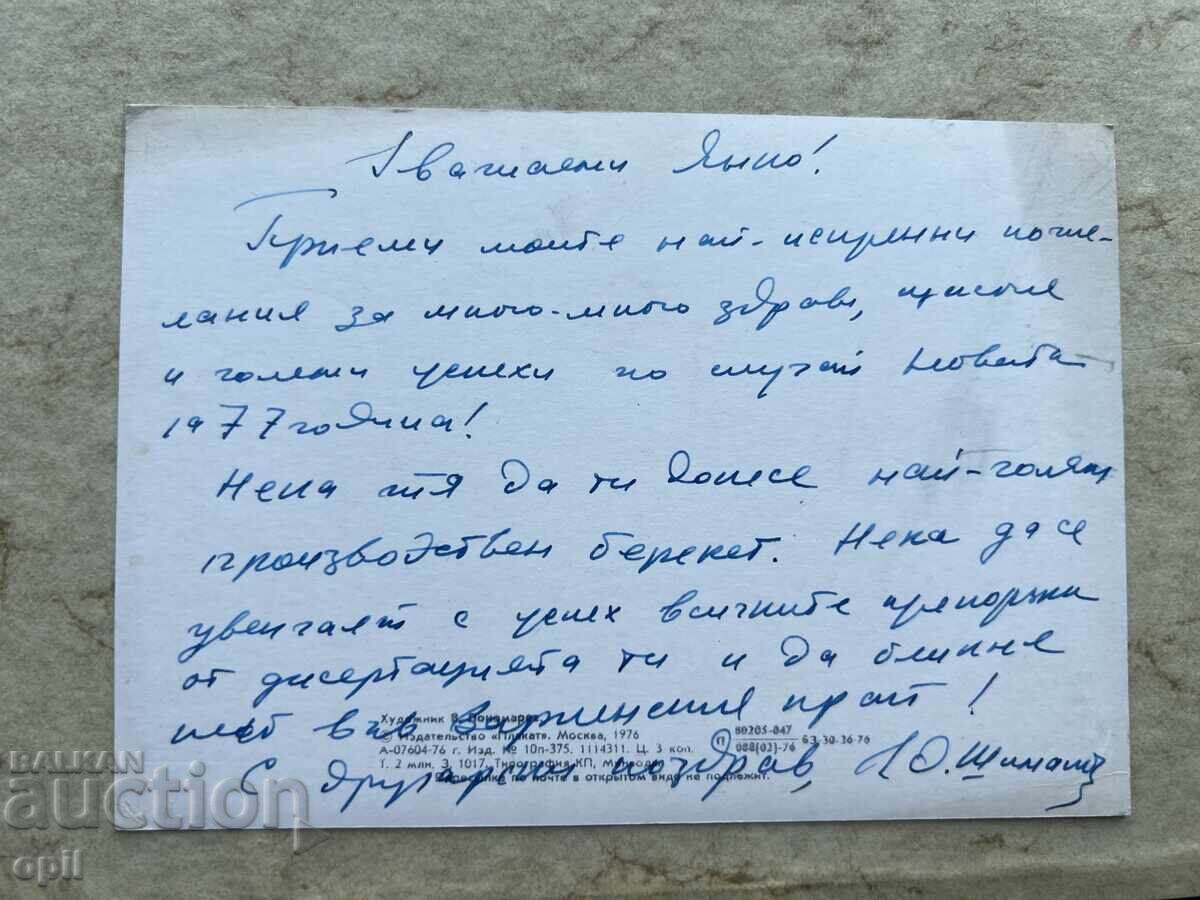 Уважаеми Янко!
Приеми моите най-искренни поже-
лания за много-много здраве, щастие
и големи успехи по случай Новата
1977 година!
Нека тя да ти донесе най-голям
производствен берекет. Нека да се
увенчаят с успех всичките препоръки
от дисертацията ти и да бликне
във Варненския край!
Художник В. Пономарев
© Издательство «Плакат». Москва, 1976
А-07604-76 г. Изд. № 10п-375. 1114311. Ц. 3 коп.
Т. 2 млн. З. 1017. Типография КП, Москва
П 80205-047 / 088(02)-76 БЗ-30-36-76
по почте в открытом виде не подлежит.
С другарски поздрав, Ю.
BALKAN
auction
opil